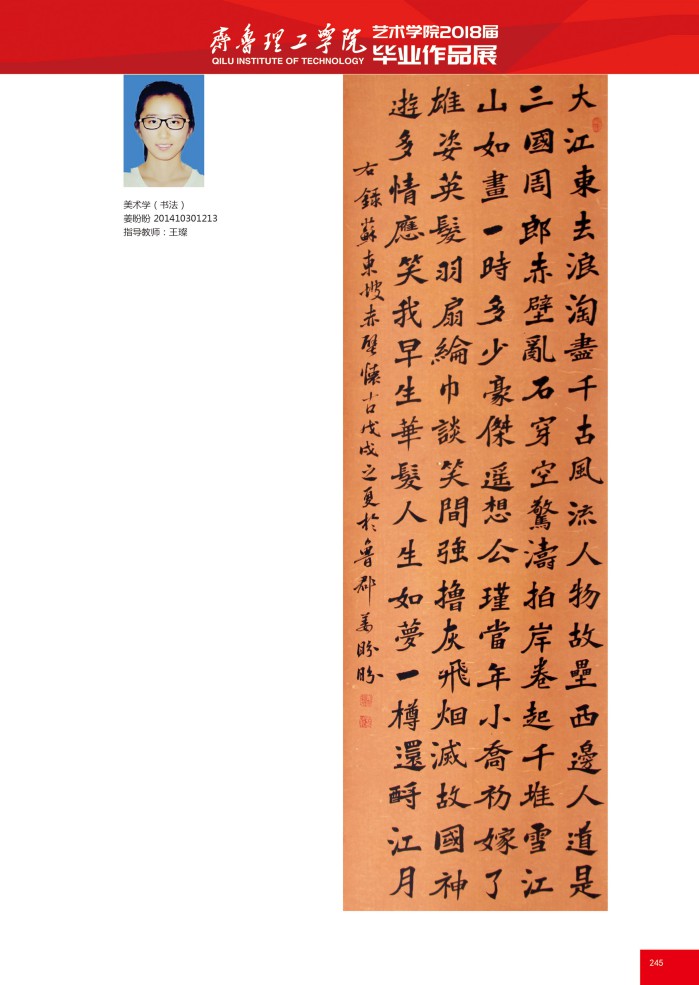 齊魯理工學院
QILU INSTITUTE OF TECHNOLOGY
艺术学院2018届
毕业作品展
美术学（书法）
姜盼盼 201410301213
指导教师：王璨
大江東去浪淘盡千古風流人物故壘西邊人道是
三國周郎赤壁亂石穿空驚濤拍岸卷起千堆雪江
山如畫一時多少豪傑遥想公瑾當年小喬初嫁了
雄姿英髮羽扇綸巾談笑間強擼灰飛烟滅故國神
遊多情應笑我早生華髮人生如夢一樽還酹江月
右錄蘇東坡赤壁懷古戊戌之夏於魯郡 姜盼盼
245